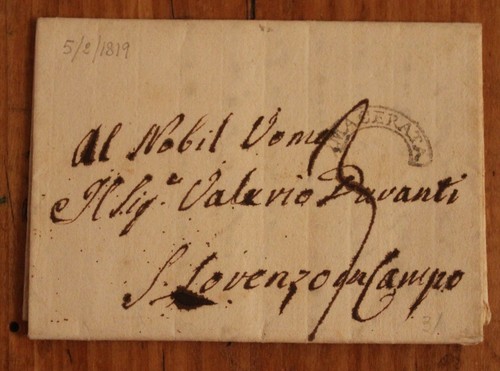 5/8/1819
MACERATA
Al Nobil Uomo
Il Sig.ʳᵉ Valerio Davanti
S. Lorenzo in Campo
3/